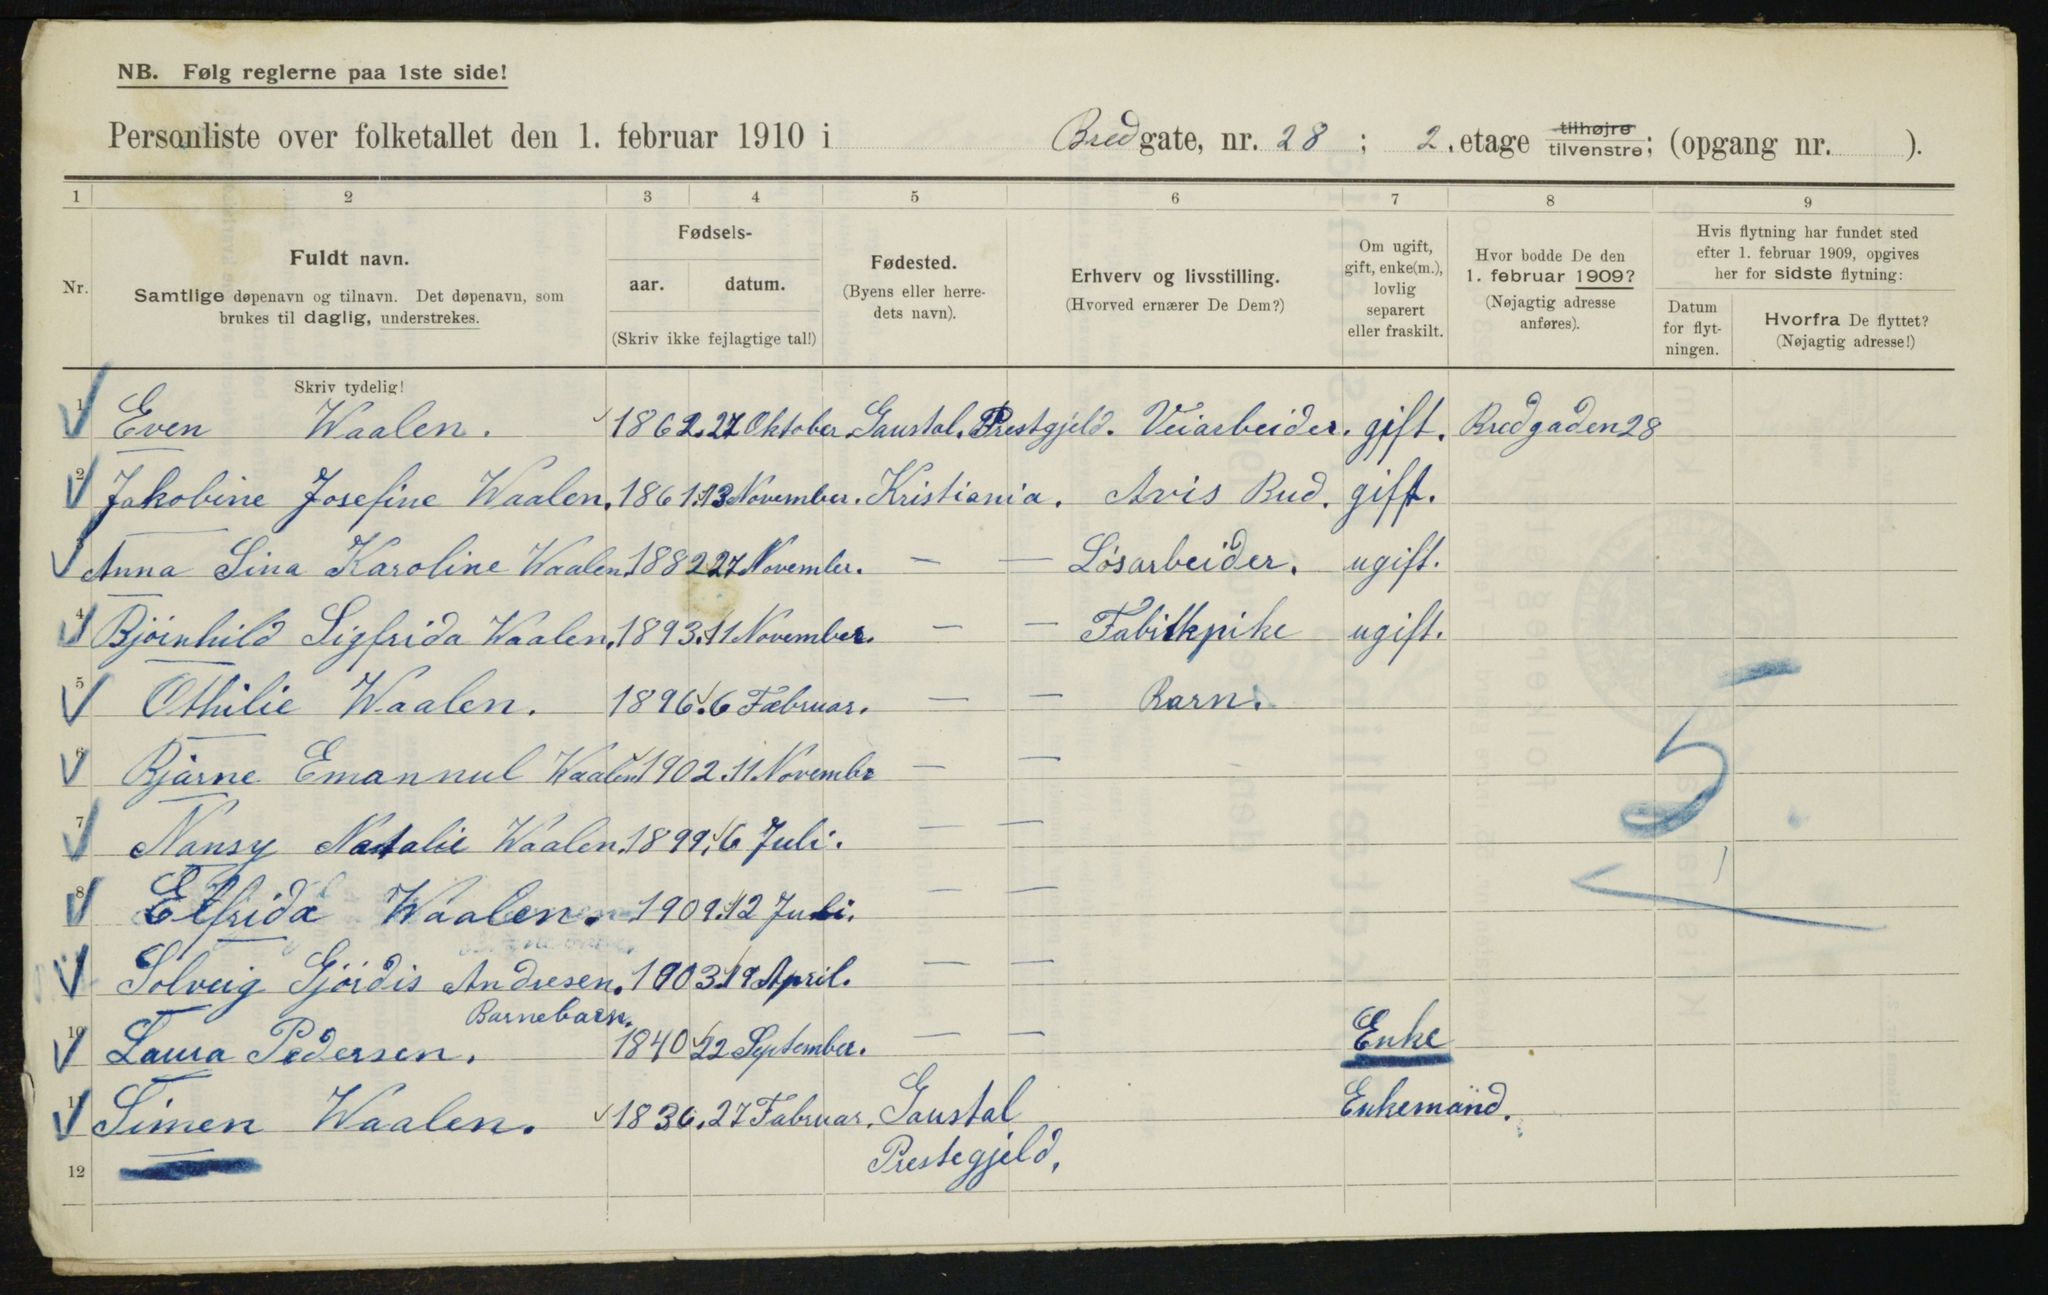 NB. Følg reglerne paa 1ste side!
Personliste over folketallet den 1. februar 1910 i Bredgate, nr. 28 ; 2. etage tilhøjre tilvenstre; (opgang nr. ).
1 2 3 4 5 6 7 8 9
Nr.
Fuldt navn.
Samtlige døpenavn og tilnavn. Det døpenavn, som
brukes til daglig, understrekes.
Skriv tydelig!
Fødsels-
aar. datum.
(Skriv ikke fejlagtige tal!)
Fødested.
(Byens eller herre-
dets navn).
Erhverv og livsstilling.
(Hvorved ernærer De Dem?)
Om ugift,
gift, enke(m.),
lovlig
separert
eller fraskilt.
Hvor bodde De den
1. februar 1909?
(Nøjagtig adresse
anføres).
Hvis flytning har fundet sted
efter 1. februar 1909, opgives
her for sidste flytning:
Datum
for flyt-
ningen.
Hvorfra De flyttet?
(Nøjagtig adresse!)
1 Even Waalen. 1862. 27 Oktober. Gaustal. Prestgjeld. Veiarbeider. gift. Bredgaden 28
2 Jakobine Josefine Waalen. 1861. 13 November. Kristiania. Avis Bud. gift.
3 Anna Lina Karoline Waalen 1882 27 November. — — Løsarbeider. ugift.
4 Bjøinhild Sigfrida Waalen. 1893. 11 November. — — Fabrikpike ugift.
5 Othilie Waalen. 1896. 6 Fæbruar. — — Barn.
6 Bjarne Emannul Waalen 1902. 11 Novembr — —
7 Nansy Natalie Waalen. 1899. 6 Juli. — —
8 Elfrida Waalen. 1909. 12 Juli. — —
9 Solveig Gjørdis Andresen. 1903. 19 April. — —
Barnebarn.
10 Laura Pedersen. 1840 22 September. — — Enke
11 Simen Waalen. 1836. 27 Fabruar. Gaustal Enkemand.
Prestegjeld.
12
5